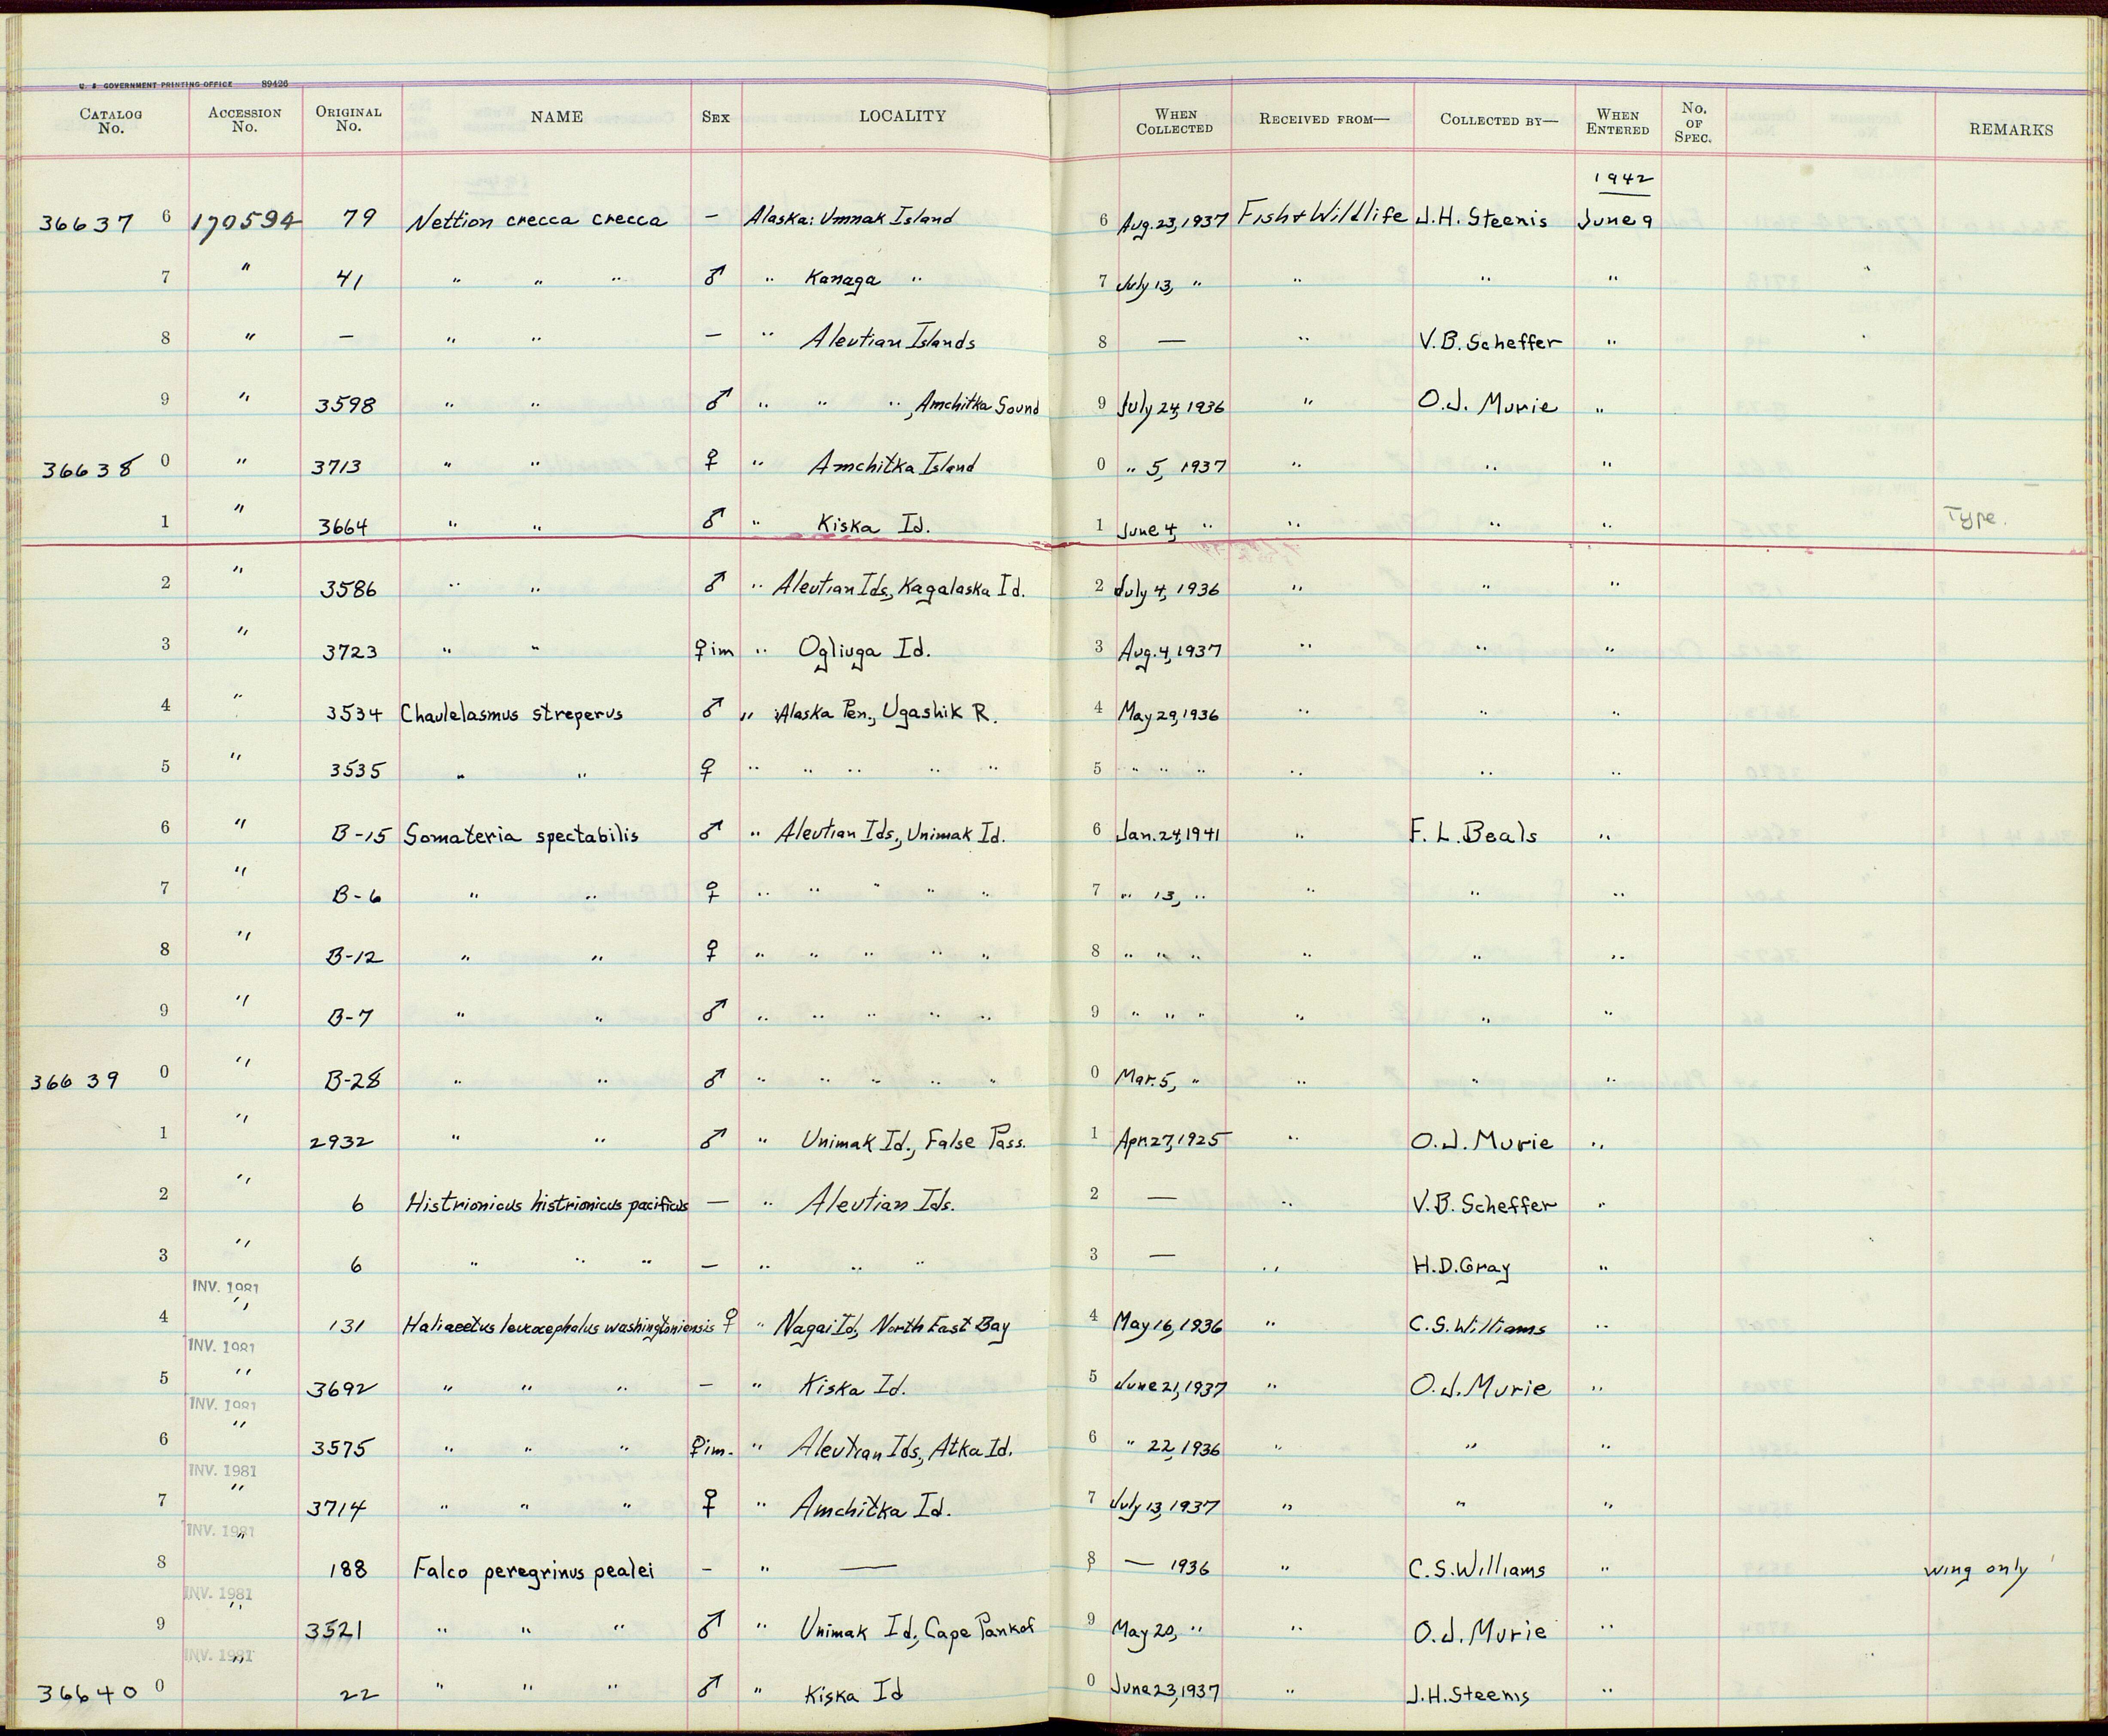 U. S. GOVERNMENT PRINTING OFFICE 89426
CATALOG No. ACCESSION No. ORIGINAL No. NAME SEX LOCALITY WHEN COLLECTED RECEIVED FROM— COLLECTED BY— WHEN ENTERED No. OF SPEC. REMARKS
1942
36637 6 170594 79 Nettion crecca crecca — Alaska: Umnak Island 6 Aug. 23, 1937 Fish & Wildlife J.H. Steenis June 9
7 " 41 " " " ♂ " Kanaga " 7 July 13, " " " "
8 " — " " — " Aleutian Islands 8 — " V.B. Scheffer "
9 " 3598 " " ♂ " " ", Amchitka Sound 9 July 24, 1936 " O.J. Murie "
36638 0 " 3713 " " ♀ " Amchitka Island 0 " 5, 1937 " " "
1 " 3664 " " ♂ " Kiska Id. 1 June 4, " " " " Type.
2 " 3586 " " ♂ " Aleutian Ids., Kagalaska Id. 2 July 4, 1936 " " "
3 " 3723 " " ♀ im " Ogliuga Id. 3 Aug. 4, 1937 " " "
4 " 3534 Chaulelasmus streperus ♂ " Alaska Pen., Ugashik R. 4 May 29, 1936 " " "
5 " 3535 " " ♀ " " " " " 5 " " " " " "
6 " B-15 Somateria spectabilis ♂ " Aleutian Ids., Unimak Id. 6 Jan. 24, 1941 " F. L. Beals "
7 " B-6 " " ♀ " " " " " 7 " 13, " " " "
8 " B-12 " " ♀ " " " " " 8 " " " " " "
9 " B-7 " " ♂ " " " " " 9 " " " " " "
36639 0 " B-28 " " ♂ " " " " " 0 Mar. 5, " " " "
1 " 2932 " " ♂ " Unimak Id., False Pass. 1 Apr. 27, 1925 " O.J. Murie "
2 " 6 Histrionicus histrionicus pacificus — " Aleutian Ids. 2 — " V.B. Scheffer "
3 " 6 " " " — " " " 3 — " H.D. Gray "
INV. 1981
4 " 131 Haliaeetus leucocephalus washingtoniensis ♀ " Nagai Id., North East Bay 4 May 16, 1936 " C.S. Williams "
INV. 1981
5 " 3692 " " " — " Kiska Id. 5 June 21, 1937 " O.J. Murie "
INV. 1981
6 " 3575 " " " ♀ im. " Aleutian Ids., Atka Id. 6 " 22, 1936 " " "
INV. 1981
7 " 3714 " " " ♀ " Amchitka Id. 7 July 13, 1937 " " "
INV. 1981
8 " 188 Falco peregrinus pealei — " — 8 — 1936 " C.S. Williams " wing only
INV. 1981
9 " 3521 " " " ♂ " Unimak Id., Cape Pankof 9 May 20, " " O.J. Murie "
INV. 1981
36640 0 " 22 " " " ♂ " Kiska Id 0 June 23, 1937 " J.H. Steenis "